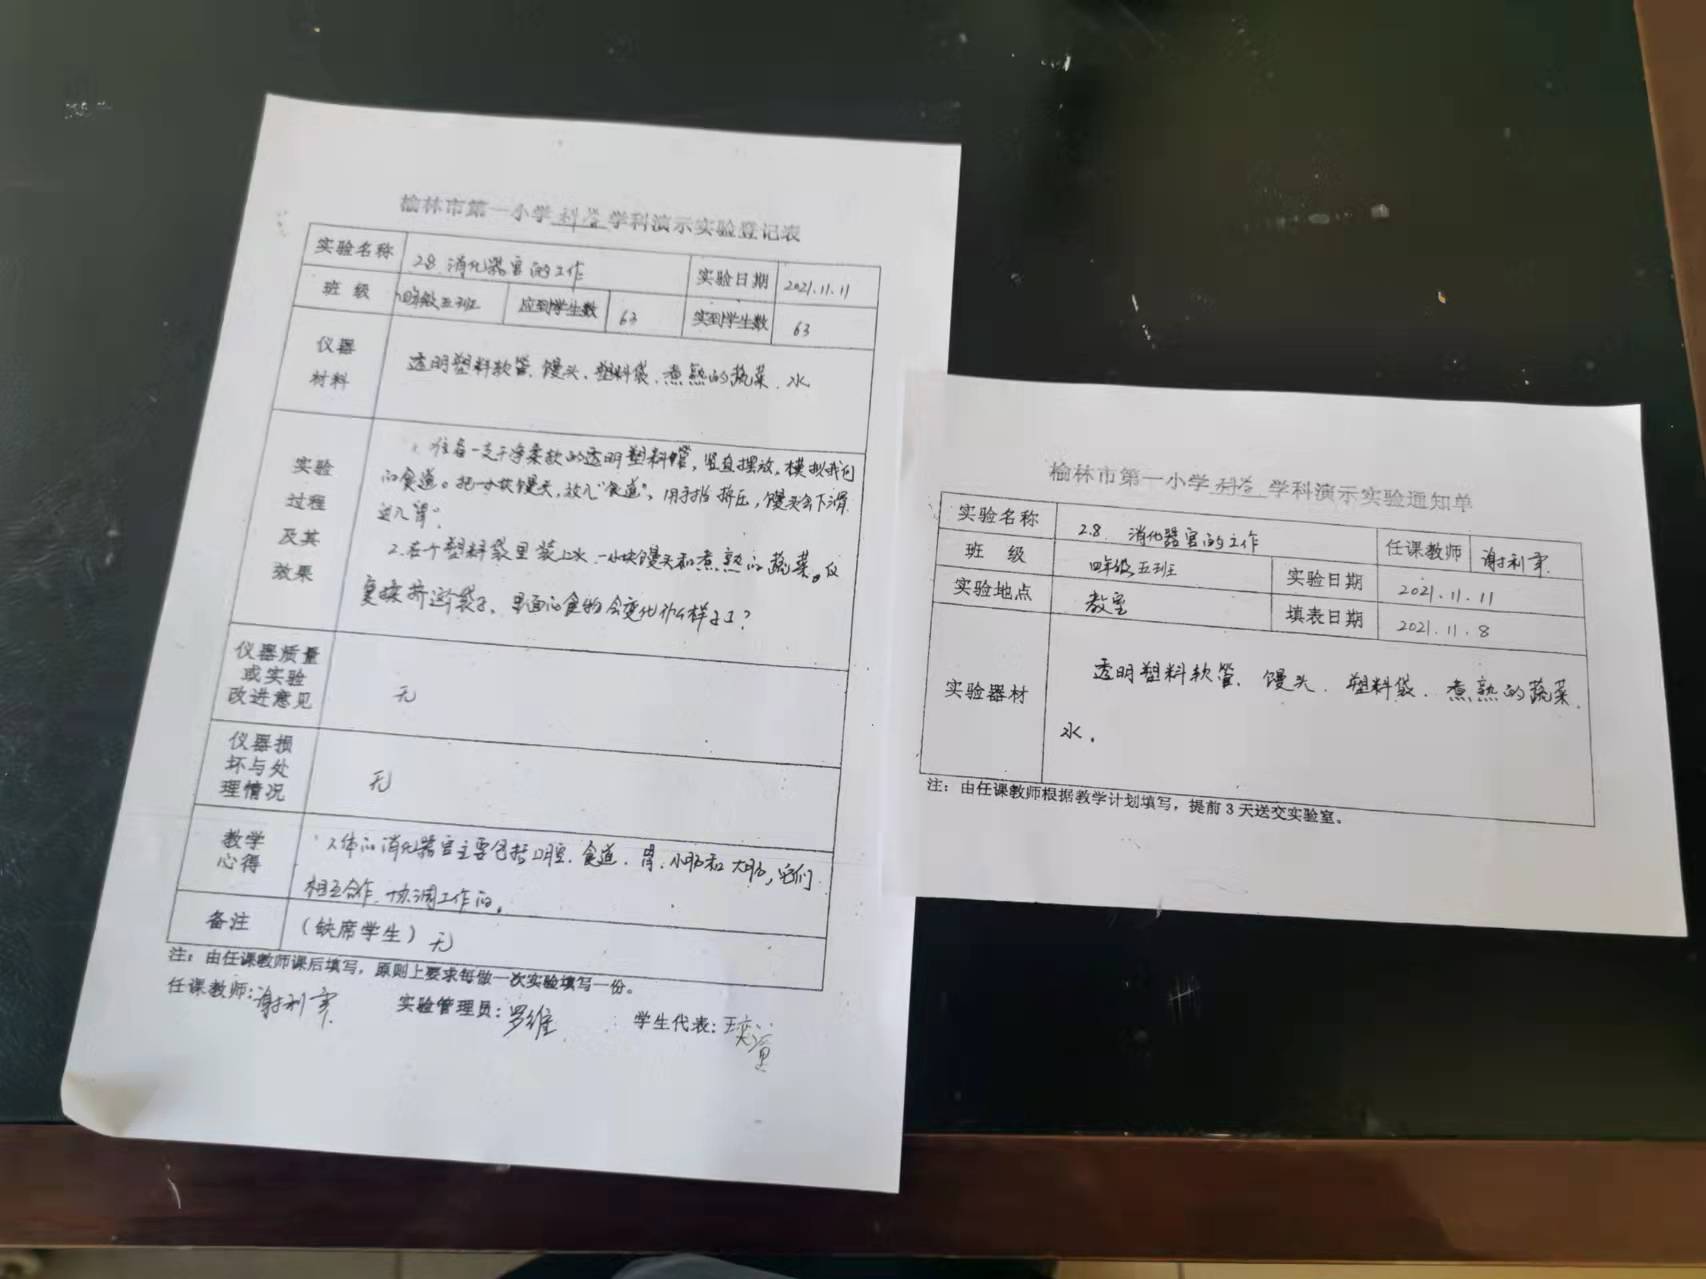 榆林市第一小学科学学科演示实验登记表
实验名称 2.8 消化器官的工作 实验日期 2021.11.11
班 级 四年级五班 应到学生数 63 实到学生数 63
仪器
材料
透明塑料软管、馒头、塑料袋、煮熟的蔬菜、水
实验
过程
及其
效果
1. 准备一支干净柔软的透明塑料管，竖直摆放，模拟我们
的食道。把一小块馒头，放入“食道”，用手指挤压，馒头会下滑
进入胃”。
2.在个塑料袋里装上水、一小块馒头和煮熟的蔬菜。反
复揉挤这个袋子，里面的食物会变化什么样子了？
仪器质量
或实验
改进意见
无
仪器损
坏与处
理情况
无
教学
心得
人体的消化器官主要包括口腔、食道、胃、小肠和大肠，它们
相互合作、协调工作的。
备注 （缺席学生）无
注：由任课教师课后填写，原则上要求每做一次实验填写一份。
任课教师：谢利 实验管理员：罗维 学生代表：王奕
榆林市第一小学科学学科演示实验通知单
实验名称 2.8 消化器官的工作 任课教师 谢利
班 级 四年级五班 实验日期 2021.11.11
实验地点 教室 填表日期 2021.11.8
实验器材
透明塑料软管、馒头、塑料袋、煮熟的蔬菜、
水。
注：由任课教师根据教学计划填写，提前3天送交实验室。